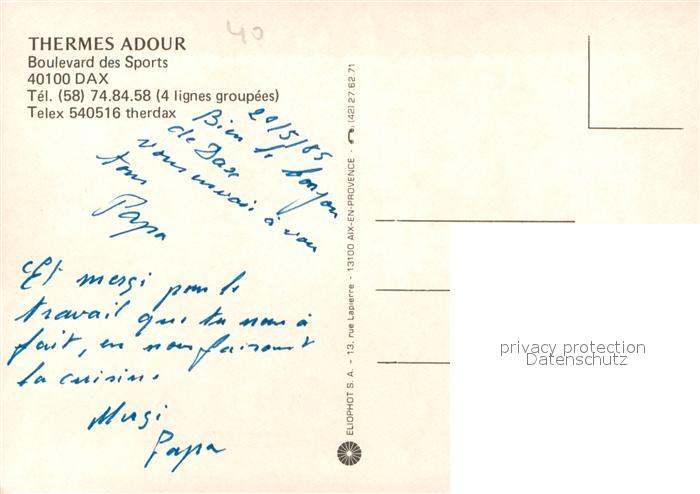 40
THERMES ADOUR
Boulevard des Sports
40100 DAX
Tél. (58) 74.84.58 (4 lignes groupées)
Telex 540516 therdax
20/5/85
Bien le bonjou
de Dax
vous à vou
tous
Papa
Et mersi pour le
travail que tu nous à
fait, en nous faisant
la cuisine
Mersi
Papa
ELIOPHOT S. A. - 13, rue Lapierre - 13100 AIX-EN-PROVENCE - (42) 27.62.71
privacy protection
Datenschutz